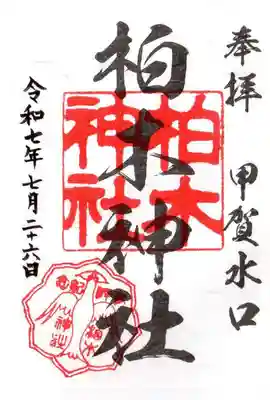 奉拝
甲賀水口
柏木神社
柏木
神社
令和七年七月二十六日
柏木
神社